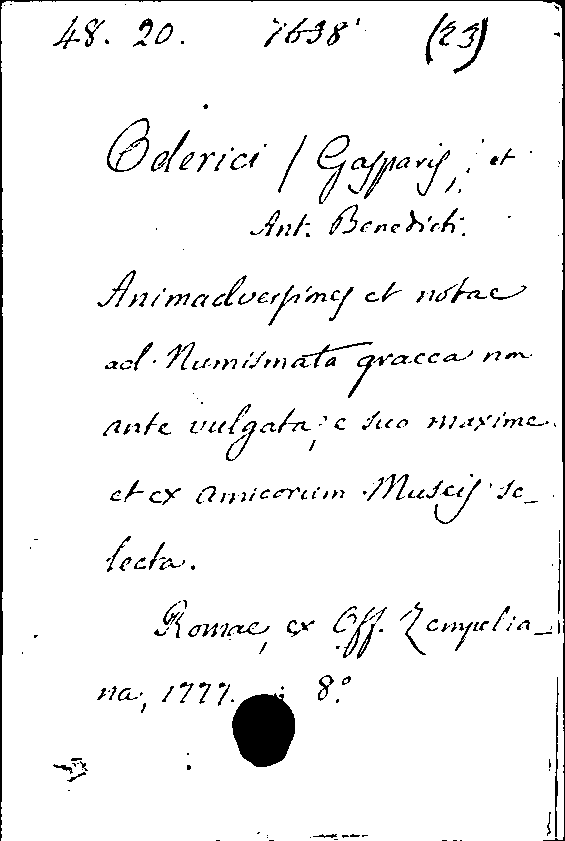 48. 20. 7698' (23)
Oderici / Gasparis, et
Ant. Benedicti.
Animadversiones et notae
ad Numismata graeca non
ante vulgata, e suo maxime
et ex amicorum Museis se_
lecta.
Romae, ex Off. Zempelia_
na, 1777. 8.°